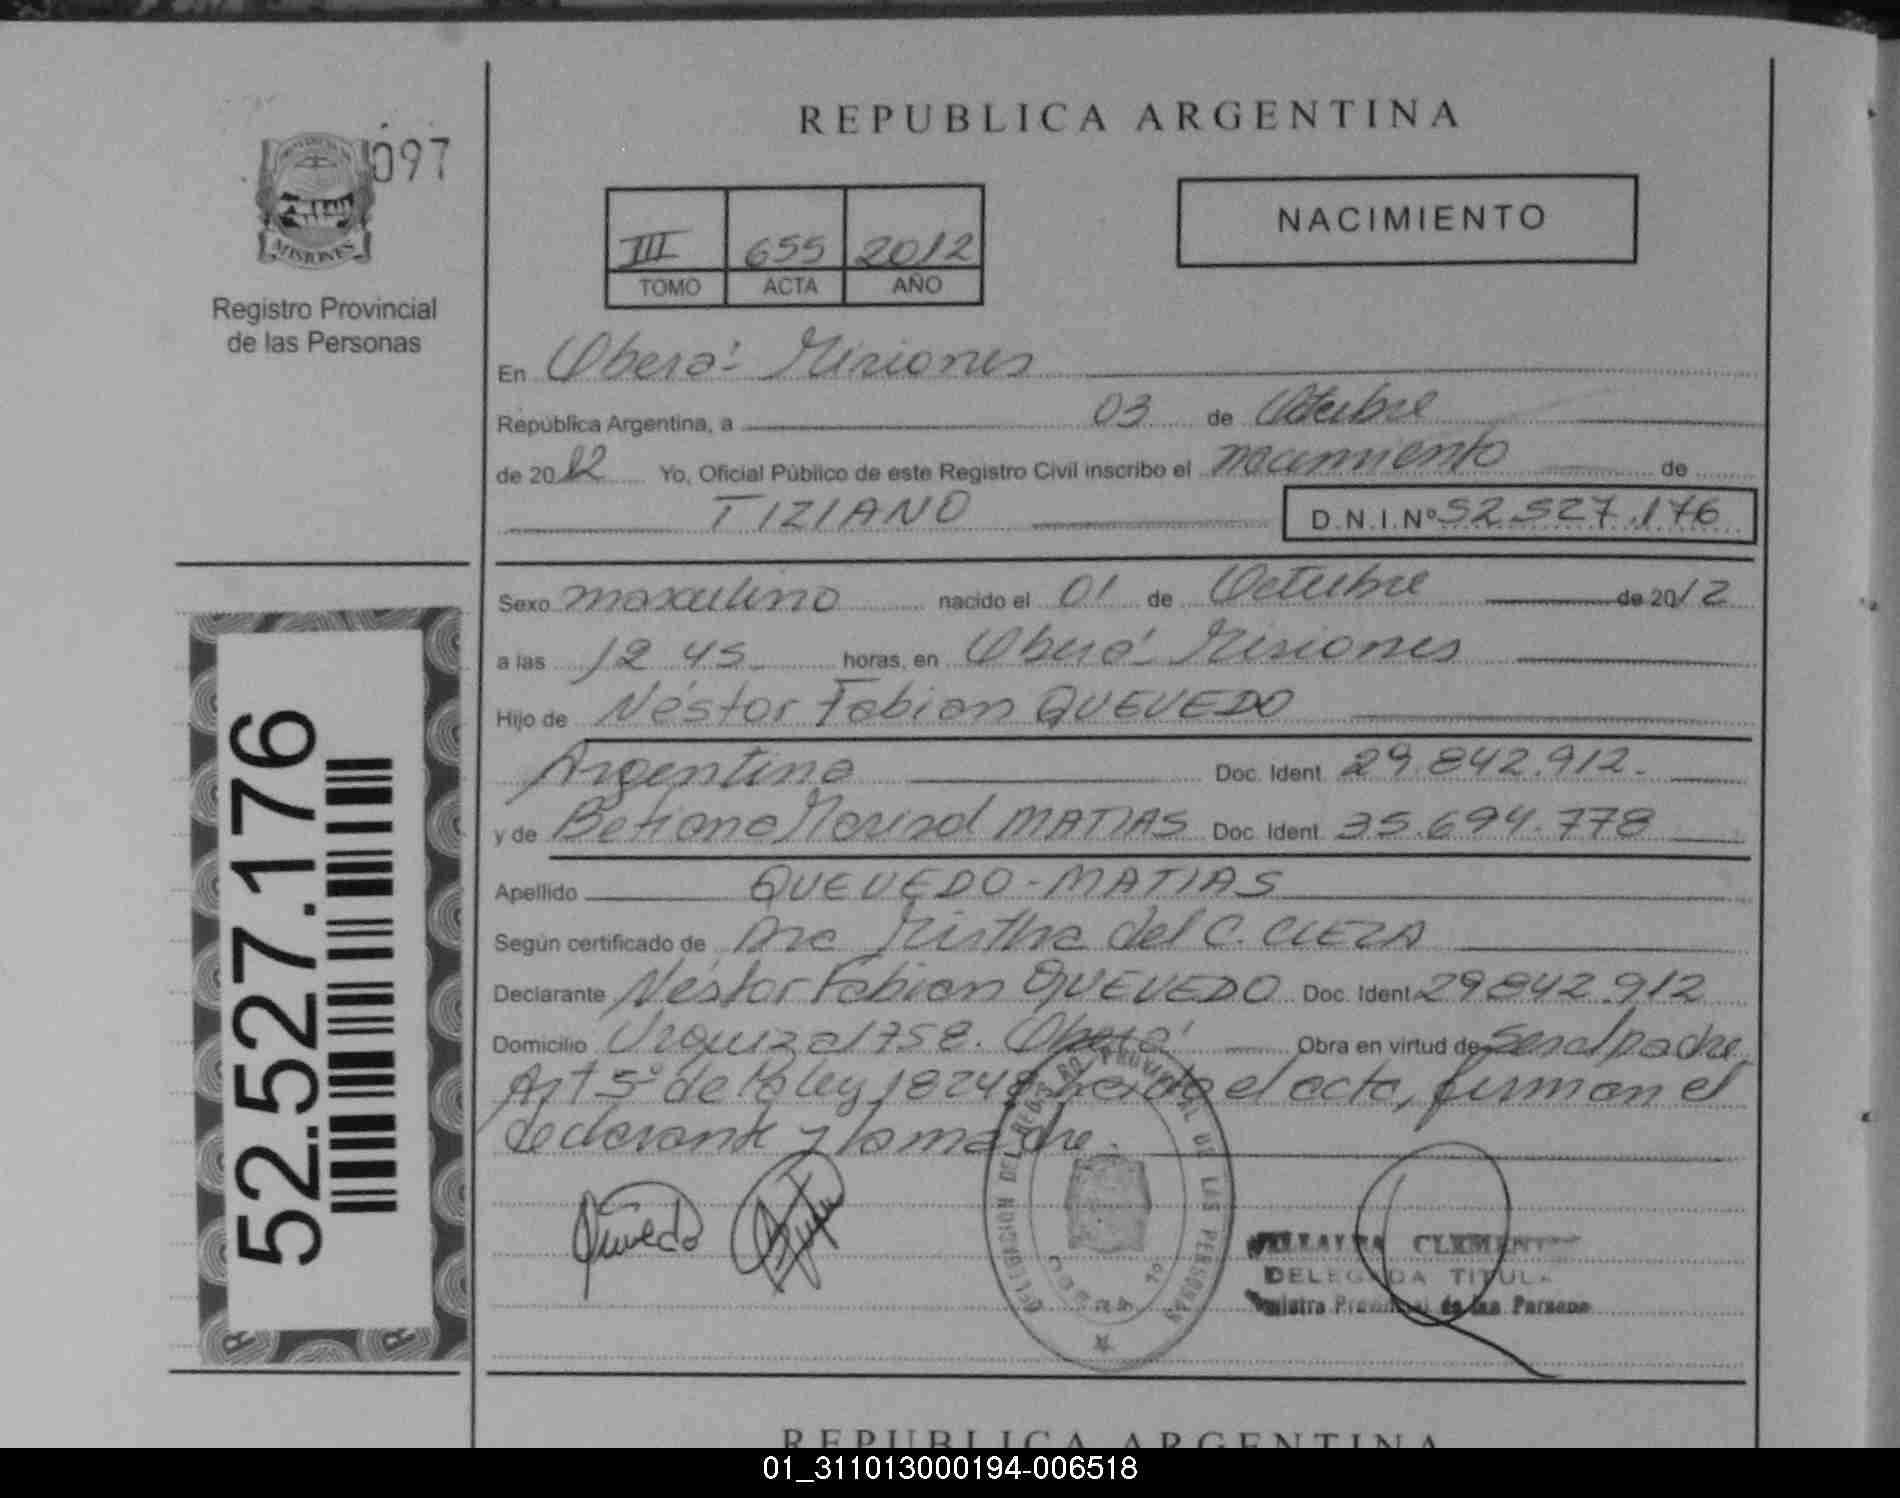 097
MISIONES
Registro Provincial
de las Personas
REPUBLICA ARGENTINA
III 655 2012
TOMO ACTA AÑO
NACIMIENTO
En Oberá - Misiones
República Argentina, a 03 de Octubre
de 2012 Yo, Oficial Público de este Registro Civil inscribo el nacimiento de
TIZIANO D.N.I.Nº 52.527.176
Sexo masculino nacido el 01 de Octubre de 2012
a las 12 45 horas, en Oberá - Misiones
Hijo de Néstor Fabian QUEVEDO
Argentina Doc. Ident. 29.842.912.
y de Betiana Marisol MATIAS Doc. Ident. 35.694.778
Apellido QUEVEDO - MATIAS
Según certificado de Mirtha del C. CLEZA
Declarante Néstor Fabian QUEVEDO Doc. Ident. 29842.912
Domicilio Urquiza 1758. Oberá Obra en virtud de ser el padre
Art 5º de la ley 18248 el acta, firman el
declarante y la madre.
Quevedo
DELEGACION DEL REGISTRO PROVINCIAL DE LAS PERSONAS
CLEMENT
DELEGADA TITUL
Registro Provincial de las Persona
52.527.176
REPUBLICA ARGENTINA
01_311013000194-006518